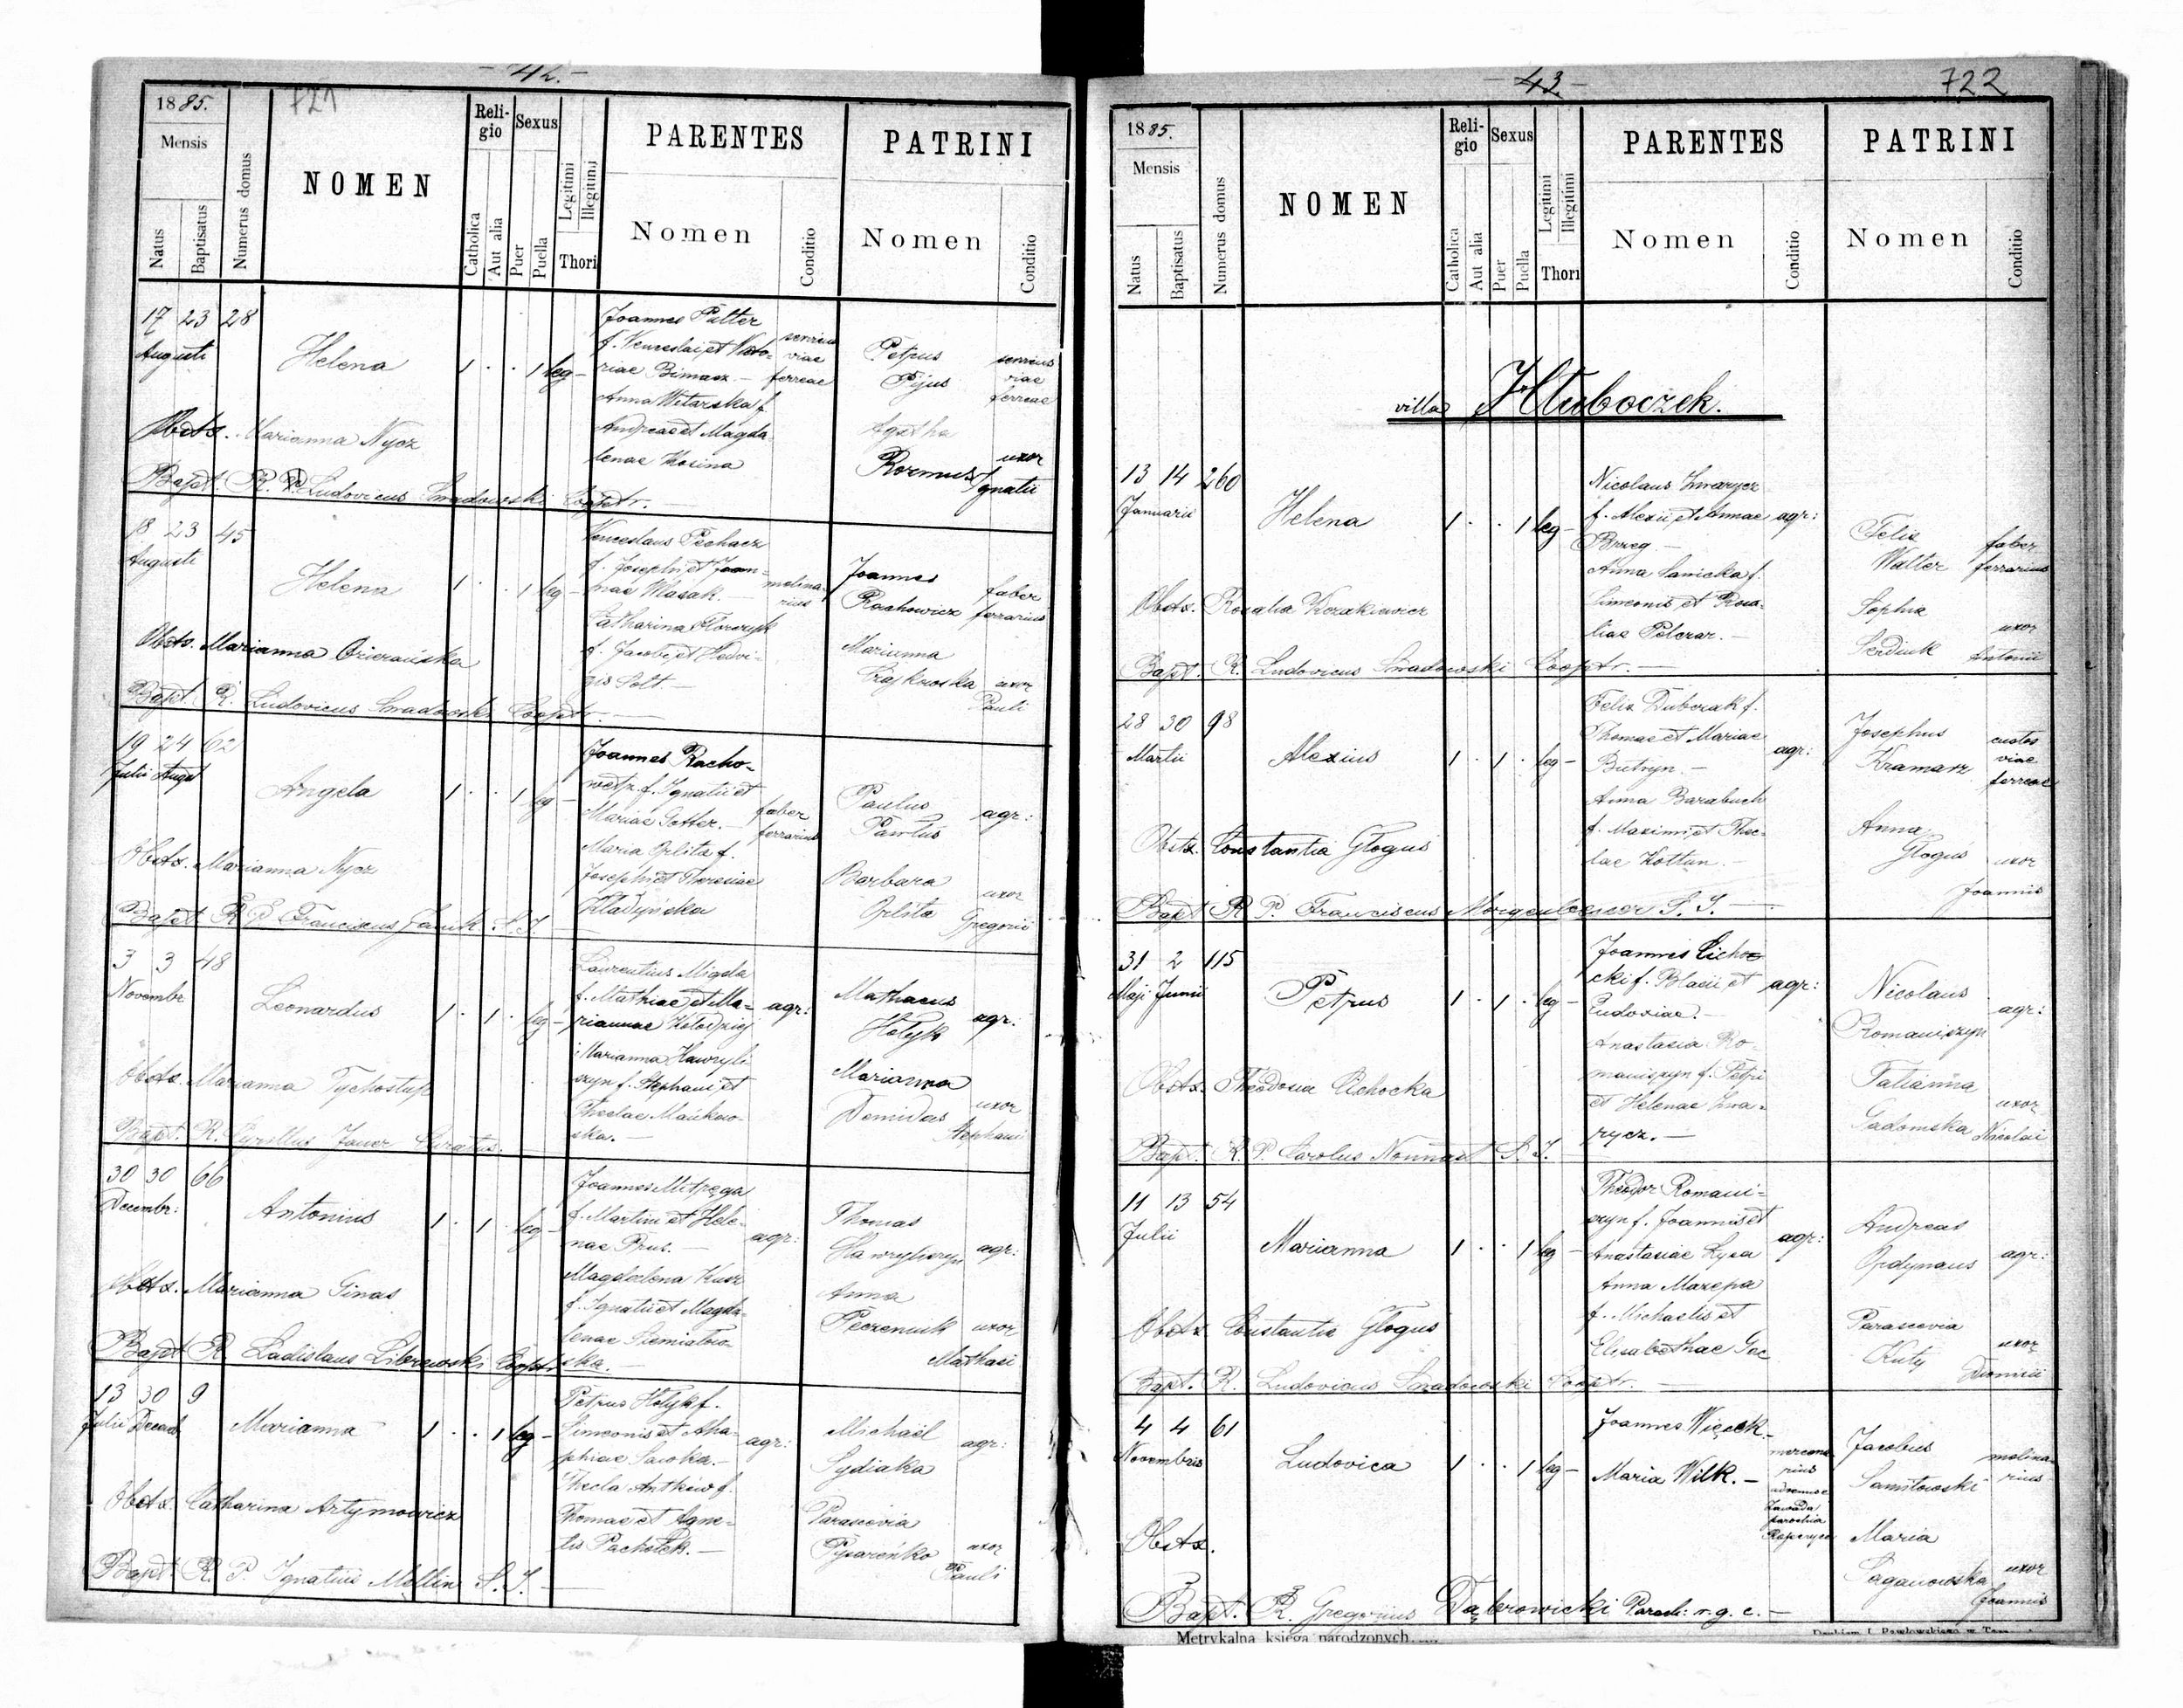 - 42. -
721
1885.
Mensis
Natus
Baptisatus
Numerus domus
NOMEN
Religio
Catholica
Aut alia
Sexus
Puer
Puella
Legitimi
Illegitimi
Thori
PARENTES
Nomen
Conditio
PATRINI
Nomen
Conditio
17 23 28
Augusti
Helena
1 . . 1 leg -
Joannes Pulter
riae
Anna Witarska f.
Andreae et Magda
lenae Kosina
viae
ferreae
Petrus
Pijus
viae
ferreae
Agatha
uxor
Ignatii
Obsts. Marianna Nycz
Bapt. R. Ludovicus Smadowski Cooptr.
18 23 45
Augusti
Helena
1 . . 1 leg -
Venceslaus Pechacz
f. Josephi et Joan-
nae Wlasak.
Catharina
f. Jacobi et Hedvi-
gis Solt. -
molina-
rius
Joannes
Rachowicz
faber
ferrarius
Marianna
uxor
Pauli
Obsts. Marianna
Bapt. R. Ludovicus Smadowski Cooptr.
19 24 62
Julii Augst
Angela
1 . . 1 leg -
Joannes Racho-
wetz f. Ignatii et
Mariae Setter. -
Maria Orlita f.
Josephi et Theresiae
faber
ferrarius
Paulus
Pawlus
agr:
Barbara
Orlita
uxor
Gregorii
Obsts. Marianna Nycz
Bapt. R. P. Franciscus Janik S. J.
3 3 48
Novembr
Leonardus
1 . 1 . leg -
Laurentius Migda
f. Mathiae et Ma-
riannae Kolodziej
Marianna Hawryli
szyn f. Stephani et
Theclae Mańkow-
ska. -
agr:
Mathaeus
Holyk
agr.
Marianna
Demidas
uxor
Stephani
Obsts. Marianna Tychostup
Bapt. R. Cyrillus Jauer Curatus.
30 30 66
Decembr:
Antonius
1 . 1 . leg -
Joannes Mitręga
f. Martini et Hele-
nae Prus. -
Magdalena Kusz
f. Ignatii et Magda-
lenae Siemiatow-
ska. -
agr:
Thomas
Hawryliszyn
agr:
Anna
Peczeniuk
uxor
Mathaei
Obsts. Marianna Ginas
Bapt. R. Ladislaus Librewski Cooptr.
13 30 9
Julii Decemb
Marianna
1 . . 1 leg -
Petrus Holyk f.
Simeonis et Aha-
phiae Saroka. -
Thecla Antkiw f.
Thomae et Agne-
tis Pacholek. -
agr:
Michael
Sydiaka
agr:
Parascevia
Pysarenko
uxor
Pauli
Obsts. Catharina Artymowicz
Bapt. R. P. Ignatius Mellin S. J.
- 43 -
722
1885.
Mensis
Natus
Baptisatus
Numerus domus
NOMEN
Religio
Catholica
Aut alia
Sexus
Puer
Puella
Legitimi
Illegitimi
Thori
PARENTES
Nomen
Conditio
PATRINI
Nomen
Conditio
villa Hluboczek.
13 14 260
Januarii
Helena
1 . . 1 leg -
Nicolaus Zwarycz
f. Alexii et Annae
Brzeg. -
Anna Sanicka f.
Simeonis et Rosa-
liae Pelczar. -
agr:
Felix
Walter
faber
ferrarius
Sophia
Serdiuk
uxor
Antonii
Obsts. Rosalia Kozakiewicz
Bapt. R. Ludovicus Smadowski Cooptr. -
28 30 98
Martii
Alexius
1 . 1 . leg -
Felix Duberak f.
Thomae et Mariae
Butryn. -
Anna Barabuch
f. Maximi et Thec-
lae Koltun. -
agr:
Josephus
Kramarz
custos
viae
ferreae
Anna
Glogus
uxor
Joannis
Obsts. Constantia Glogus
Bapt. R. P. Franciscus Morgenbesser S. J. -
31 2 115
Maji Junii
Petrus
1 . 1 . leg -
Joannes Cicho-
cki f. Blasii et
Eudoxiae. -
Anastasia Ro-
maniszyn f. Petri
et Helenae Zwa-
rycz. -
agr:
Nicolaus
Romaniszyn
agr:
Tatianna
Gadomska
uxor
Nicolai
Obsts. Theodosia Cichocka
Bapt. R. P. Carolus Nonnast S. J.
11 13 54
Julii
Marianna
1 . . 1 leg -
Theodor Romani-
szyn f. Joannis et
Anastasiae Lysa
Anna Mazepa
f. Michaelis et
Elisabethae Gec
agr:
Andreas
Ordynans
agr:
Parascevia
Kuty
uxor
Dionisii
Obsts. Constantia Glogus
Bapt. R. Ludovicus Smadowski Cooptr. -
4 4 61
Novembris
Ludovica
1 . . 1 leg -
Joannes Więcek -
Maria Wilk. -
mercena
rius
Zawada
parochia
Ropczyce
Jacobus
Samitowski
molina-
rius
Maria
Saganowska
uxor
Joannis
Obsts.
Bapt. R. Gregorius Dąbrowicki Paroch: r. g. c. -
Metrykalna księga narodzonych.
Drukiem J. Pawłowskiego w